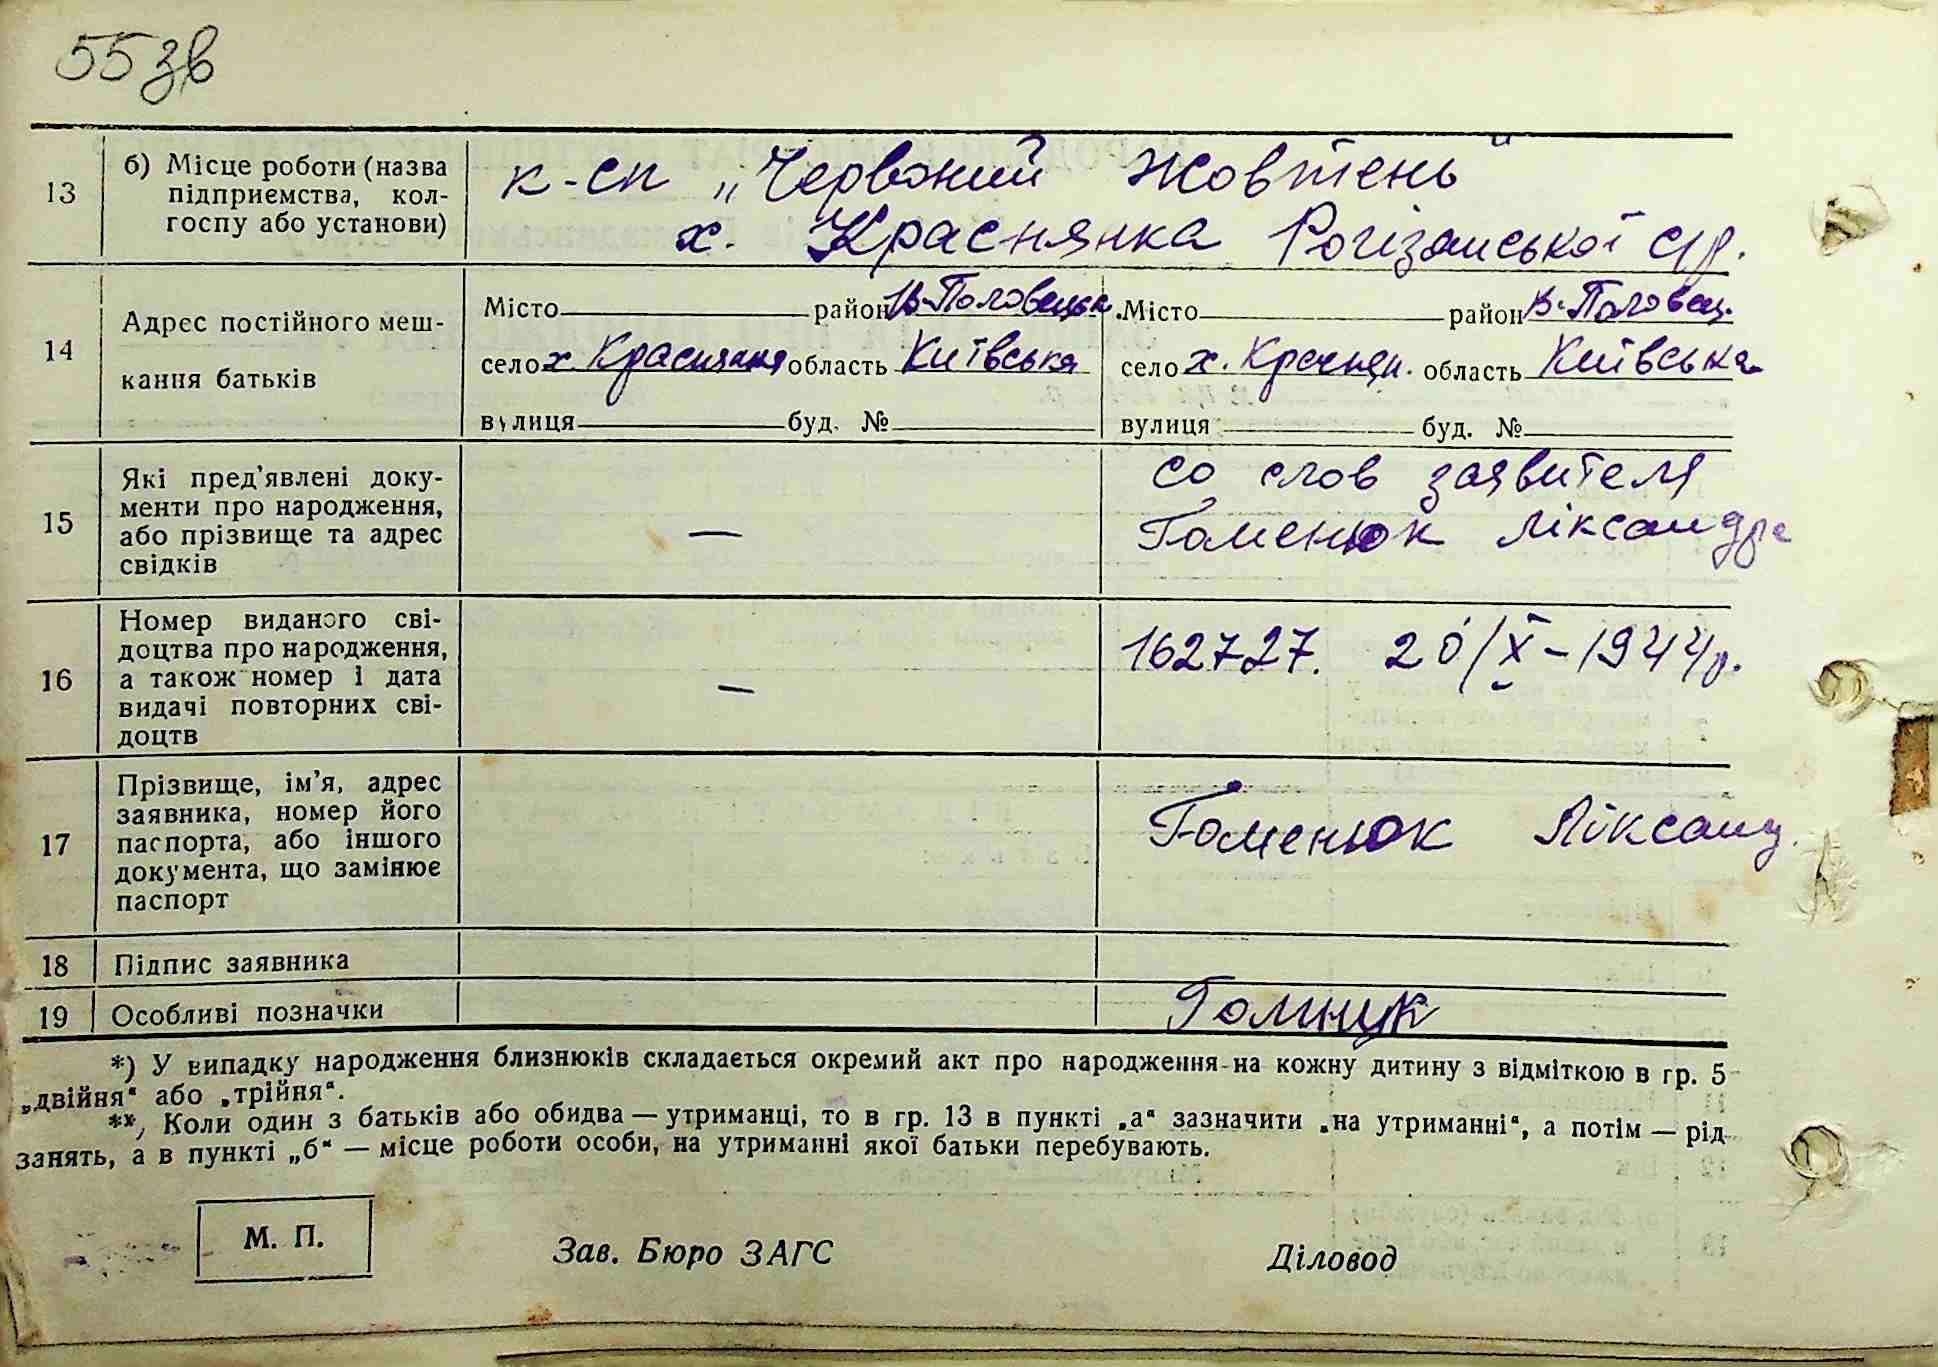 55зв
13 б) Місце роботи (назва підприємства, колгоспу або установи) к-сп „Червоний Жовтень"
х. Краснянка Рогізанської с/р.
14 Адрес постійного мешкання батьків
Місто район В-Половецьк. Місто район В-Половец.
село х. Краснянка область Київська село х. Краснян. область Київська
вулиця буд. № вулиця буд. №
15 Які пред'явлені доку-
менти про народження,
або прізвище та адрес
свідків
—
со слов заявителя
Гоменюк Ліксандра
16 Номер виданого сві-
доцтва про народження,
а також номер і дата
видачі повторних сві-
доцтв
—
162727. 20/X-1944р.
17 Прізвище, ім'я, адрес
заявника, номер його
паспорта, або іншого
документа, що замінює
паспорт
Гоменюк Ліксанд.
18 Підпис заявника
19 Особливі позначки
Гомнук
*) У випадку народження близнюків складається окремий акт про народження на кожну дитину з відміткою в гр. 5
„двійня" або „трійня".
**, Коли один з батьків або обидва — утриманці, то в гр. 13 в пункті „а" зазначити „на утриманні", а потім — рід
занять, а в пункті „б" — місце роботи особи, на утриманні якої батьки перебувають.
М. П.
Зав. Бюро ЗАГС Діловод